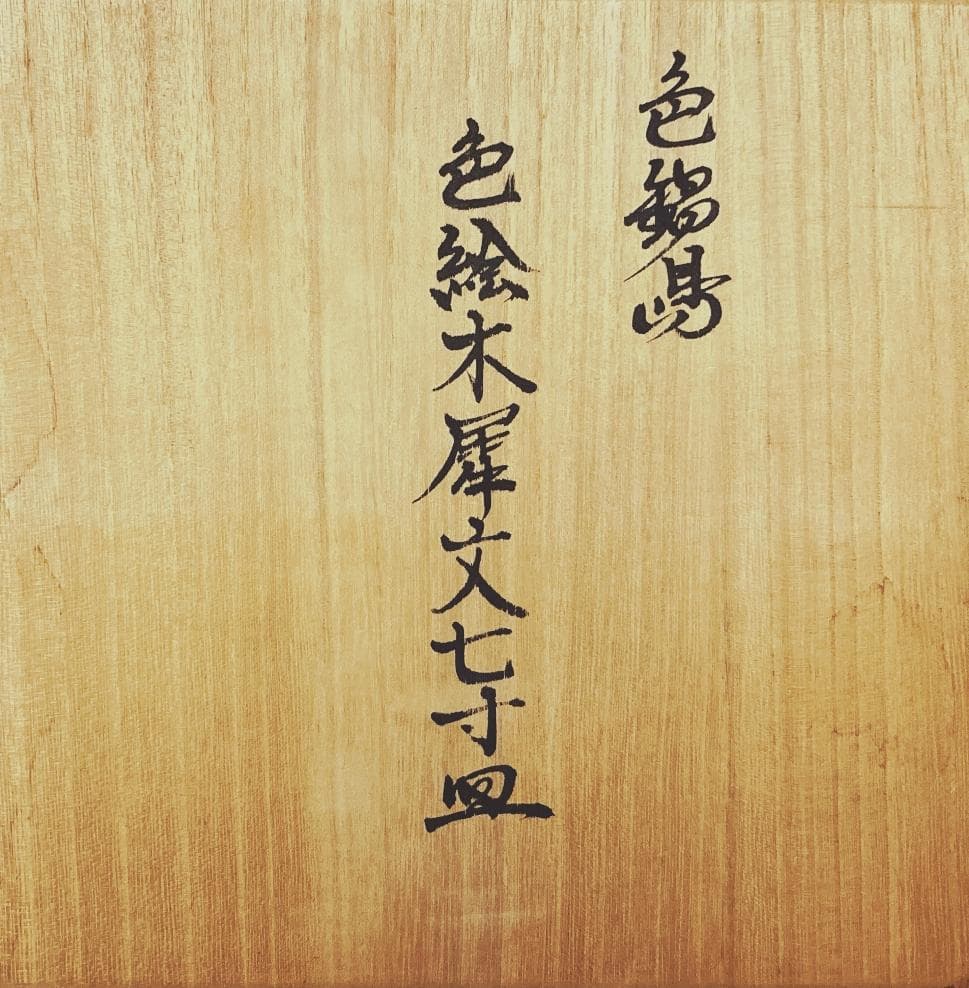 色鍋嶋
色絵木犀文七寸皿